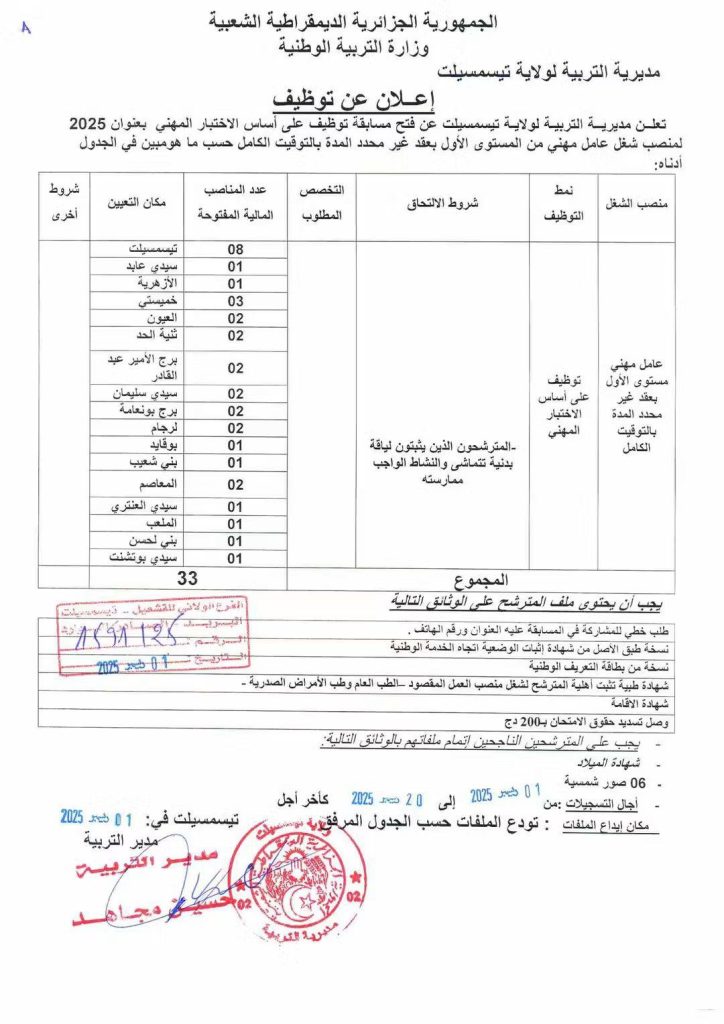 الجمهورية الجزائرية الديمقراطية الشعبية
وزارة التربية الوطنية
مديرية التربية لولاية تيسمسيلت
إعلان عن توظيف
تعلن مديرية التربية لولاية تيسمسيلت عن فتح مسابقة توظيف على أساس الاختبار المهني بعنوان 2025
لمنصب شغل عامل مهني من المستوى الأول بعقد غير محدد المدة بالتوقيت الكامل حسب ما هومبين في الجدول
أدناه:
منصب الشغل | نمط التوظيف | شروط الالتحاق | التخصص المطلوب | عدد المناصب المالية المفتوحة | مكان التعيين | شروط أخرى
عامل مهني مستوى الأول بعقد غير محدد المدة بالتوقيت الكامل | توظيف على أساس الاختبار المهني | -المترشحون الذين يثبتون لياقة بدنية تتماشى والنشاط الواجب ممارسته
08 تيسمسيلت
01 سيدي عابد
01 الأزهرية
03 خميستي
02 العيون
02 ثنية الحد
02 برج الأمير عبد القادر
02 سيدي سليمان
02 برج بونعامة
02 لرجام
01 بوقايد
01 بني شعيب
02 المعاصم
01 سيدي العنتري
01 الملعب
01 بني لحسن
01 سيدي بوتشنت
المجموع 33
يجب أن يحتوي ملف المترشح على الوثائق التالية
الفرع الولائي للتشغيل - تيسمسيلت
1591/25
التاريخ: 01 2025
طلب خطي للمشاركة في المسابقة عليه العنوان ورقم الهاتف .
نسخة طبق الأصل من شهادة إثبات الوضعية اتجاه الخدمة الوطنية
نسخة من بطاقة التعريف الوطنية
شهادة طبية تثبت أهلية المترشح لشغل منصب العمل المقصود –الطب العام وطب الأمراض الصدرية -
شهادة الاقامة
وصل تسديد حقوق الامتحان بـ200 دج
- يجب على المترشحين الناجحين إتمام ملفاتهم بالوثائق التالية:
- شهادة الميلاد
- 06 صور شمسية
- أجال التسجيلات :من 01 ديسمبر 2025 إلى 20 ديسمبر 2025 كآخر أجل
مكان إيداع الملفات : تودع الملفات حسب الجدول المرفق
تيسمسيلت في: 01 ديسمبر 2025
مدير التربية
مدير التربية
حسين مجاهد
ولاية تيسمسيلت
مديرية التربية
02
02